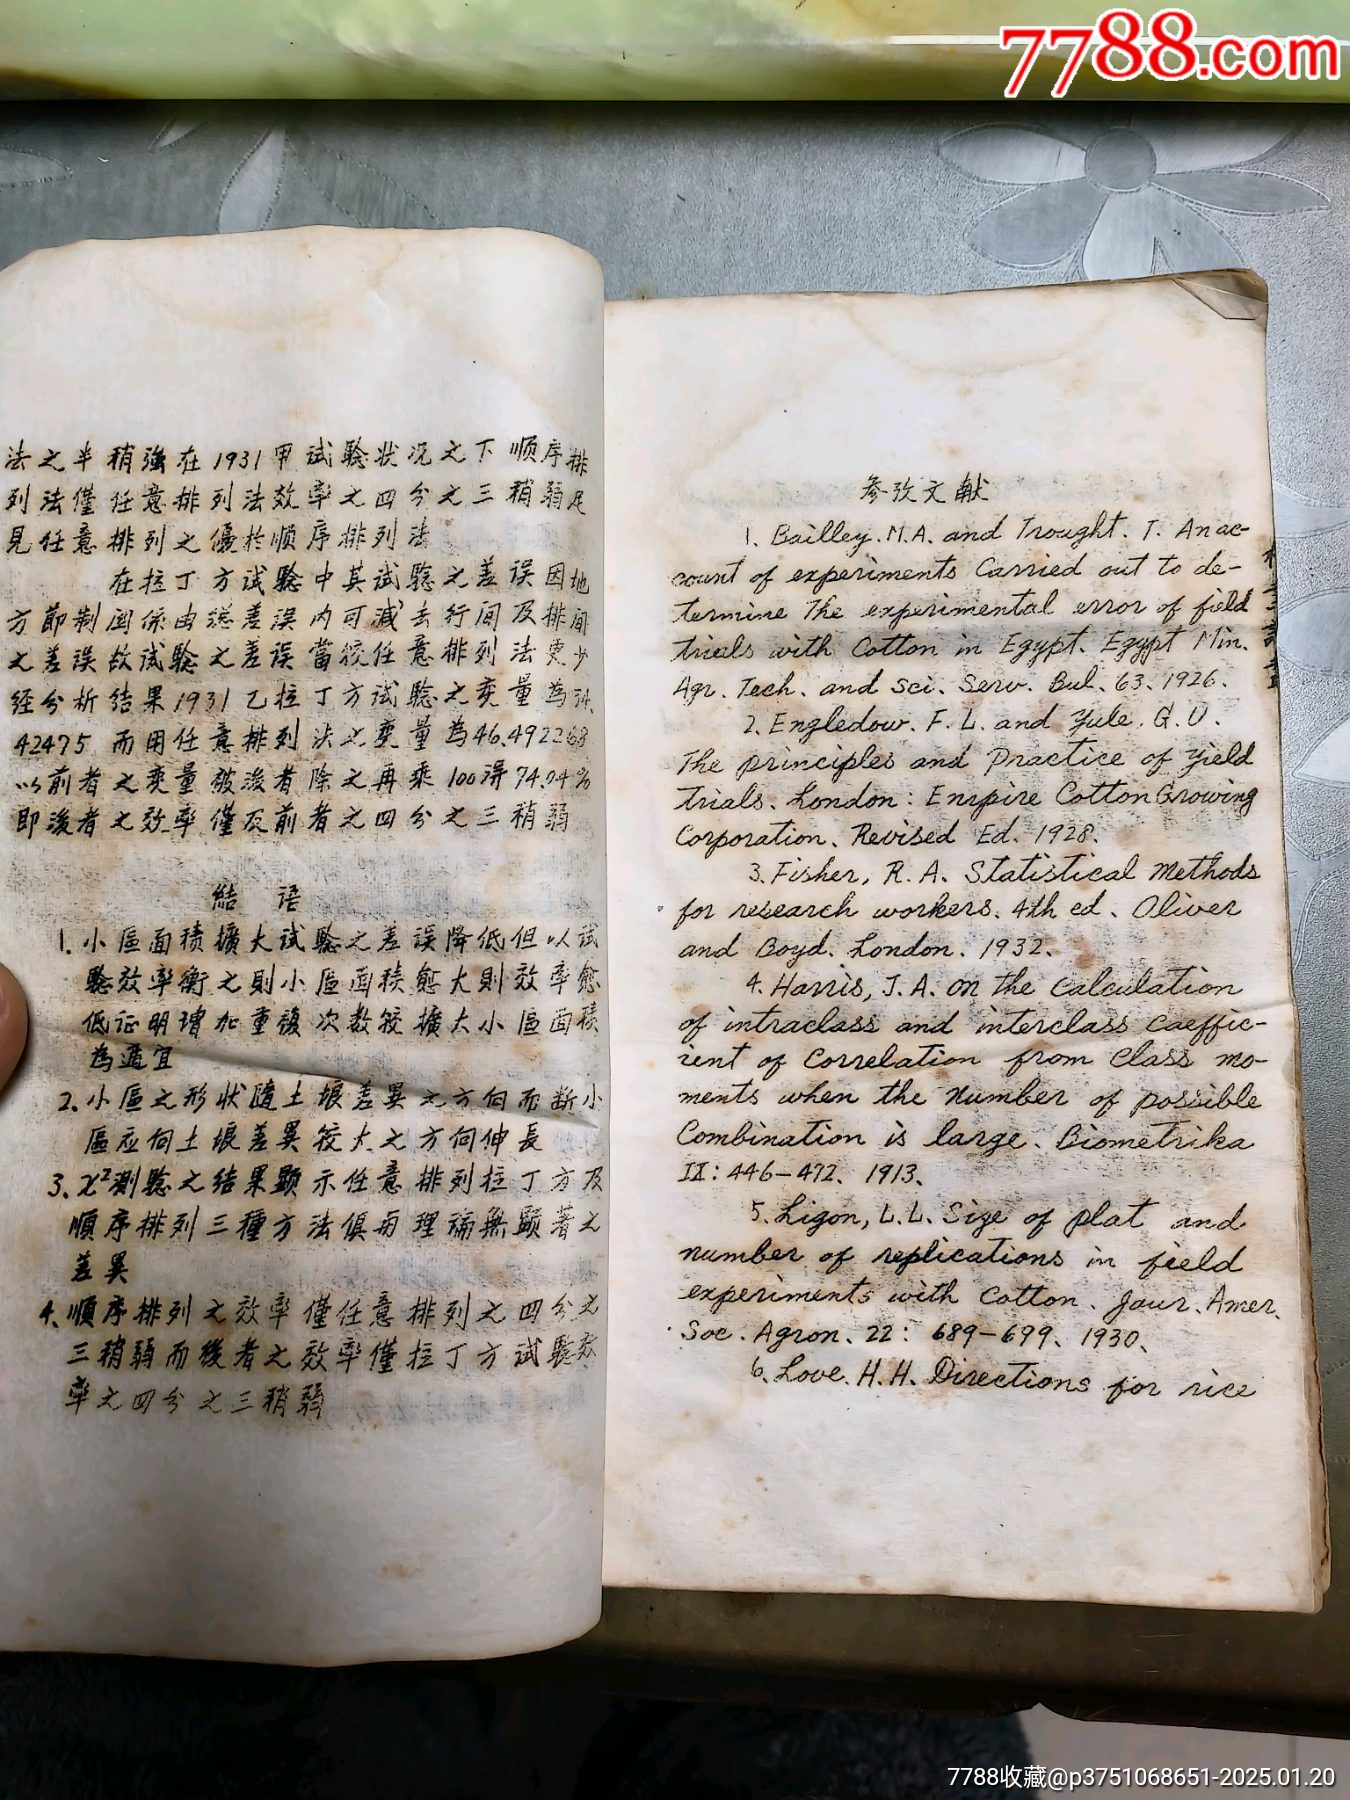 7788.com
法之半稍強在1931甲試驗狀况之下順序排
列法僅任意排列法效率之四分之三稍弱足
見任意排列之優於順序排列法
在拉丁方試驗中其試驗之差誤因地
方節制関係由總差誤內可減去行间及排间
之差誤故試驗之差誤當较任意排列法更少
经分析结果1931乙拉丁方試驗之变量為34.
42475而用任意排列法之变量為46.492268
以前者之变量被後者除之再乘100得74.04%
即後者之效率僅及前者之四分之三稍弱
結语
1.小區面積擴大試驗之差誤降低但以試
驗效率衡之則小區面積愈大則效率愈
低证明增加重複次数较擴大小區面積
為適宜
2.小區之形狀隨土壤差異之方向而断小
區应向土壤差異较大之方向伸長
3.χ²測驗之结果顯示任意排列拉丁方及
順序排列三種方法俱與理論無顯著之
差異
4.順序排列之效率僅任意排列之四分之
三稍弱而後者之效率僅拉丁方試驗效
率之四分之三稍弱
参攷文献
1. Bailley. M.A. and Trought. T. An ac-
count of experiments Carried out to de-
termine The experimental error of field
trials with Cotton in Egypt. Egypt Min.
Agr. Tech. and Sci. Serv. Bul. 63. 1926.
2. Engledow. F. L. and Yule. G. U.
The principles and Practice of Yield
trials. London: Empire Cotton Growing
Corporation. Revised Ed. 1928.
3. Fisher, R. A. Statistical Methods
for research workers. 4th ed. Oliver
and Boyd. London. 1932.
4. Harris, J. A. on the Calculation
of intraclass and interclass Caeffic-
ient of Correlation from Class mo-
ments when the Number of possible
Combination is large. Biometrika
IX: 446-472. 1913.
5. Ligon, L. L. Size of plat and
number of replications in field
experiments with Cotton. Jour. Amer.
Soc. Agron. 22: 689-699. 1930.
6. Love. H. H. Directions for rice
7788收藏@p3751068651-2025.01.20